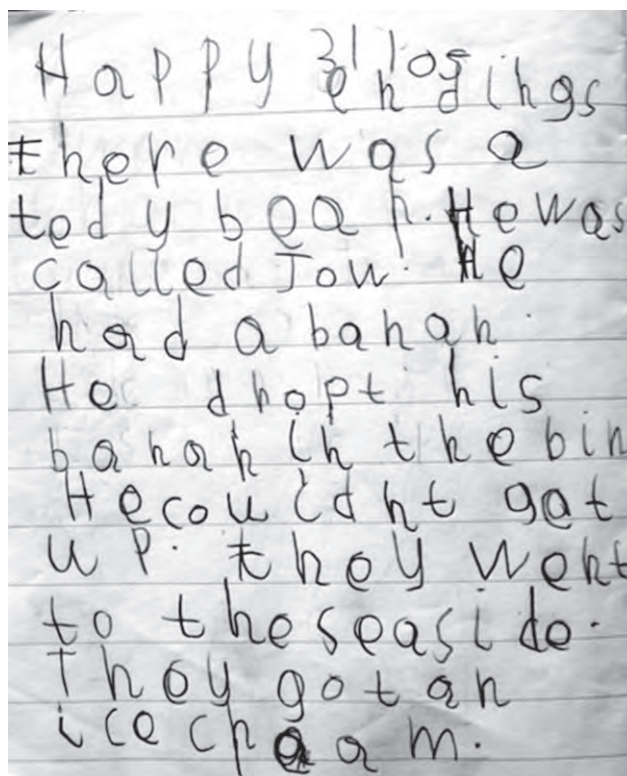 Happy endings
there was a
tedy bear. He was
called Jow. He
had a banan.
He dropt his
banan in the bin
He couldnt get
up. they went
to the seaside.
They got an
ice chream.